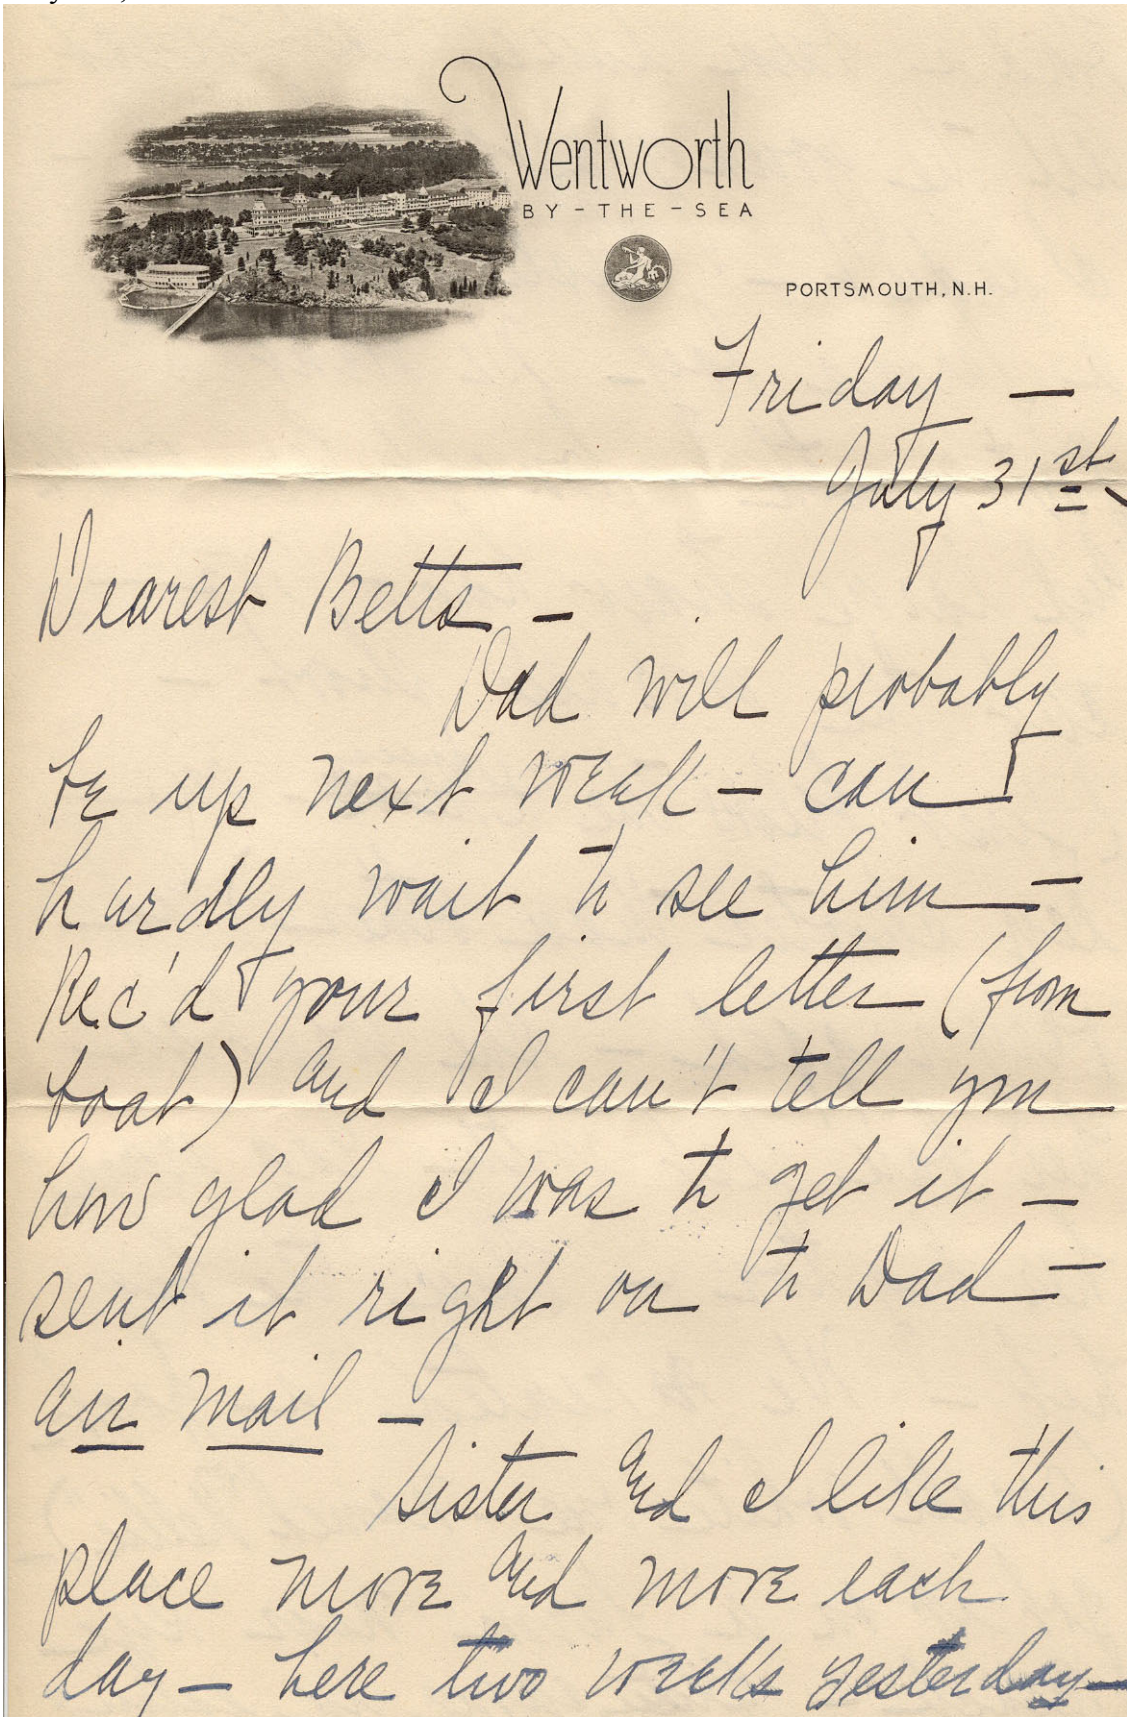 Wentworth
BY-THE-SEA
PORTSMOUTH, N.H.
Friday —
July 31st
Dearest Betts —
Dad will probably
be up next week — can
hardly wait to see him —
Rec'd your first letter (from
boat) and I can't tell you
how glad I was to get it —
sent it right on to Dad —
air mail —
Sister and I like this
place more and more each
day — here two weeks yesterday —